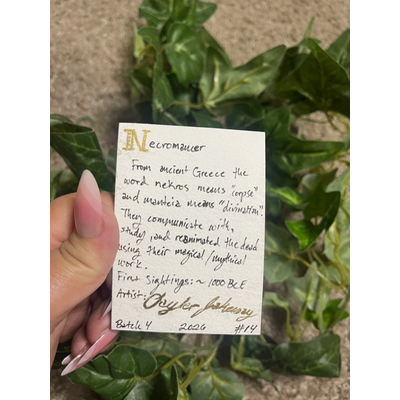 Necromancer
From ancient Greece the
word nekros means "corpse"
and manteia means "divination".
They communicate with,
study, and reanimated the dead
using their magical/mythical
work.
First Sightings: ~ 1000 BCE
Artist:
Batch 4 2026 #14